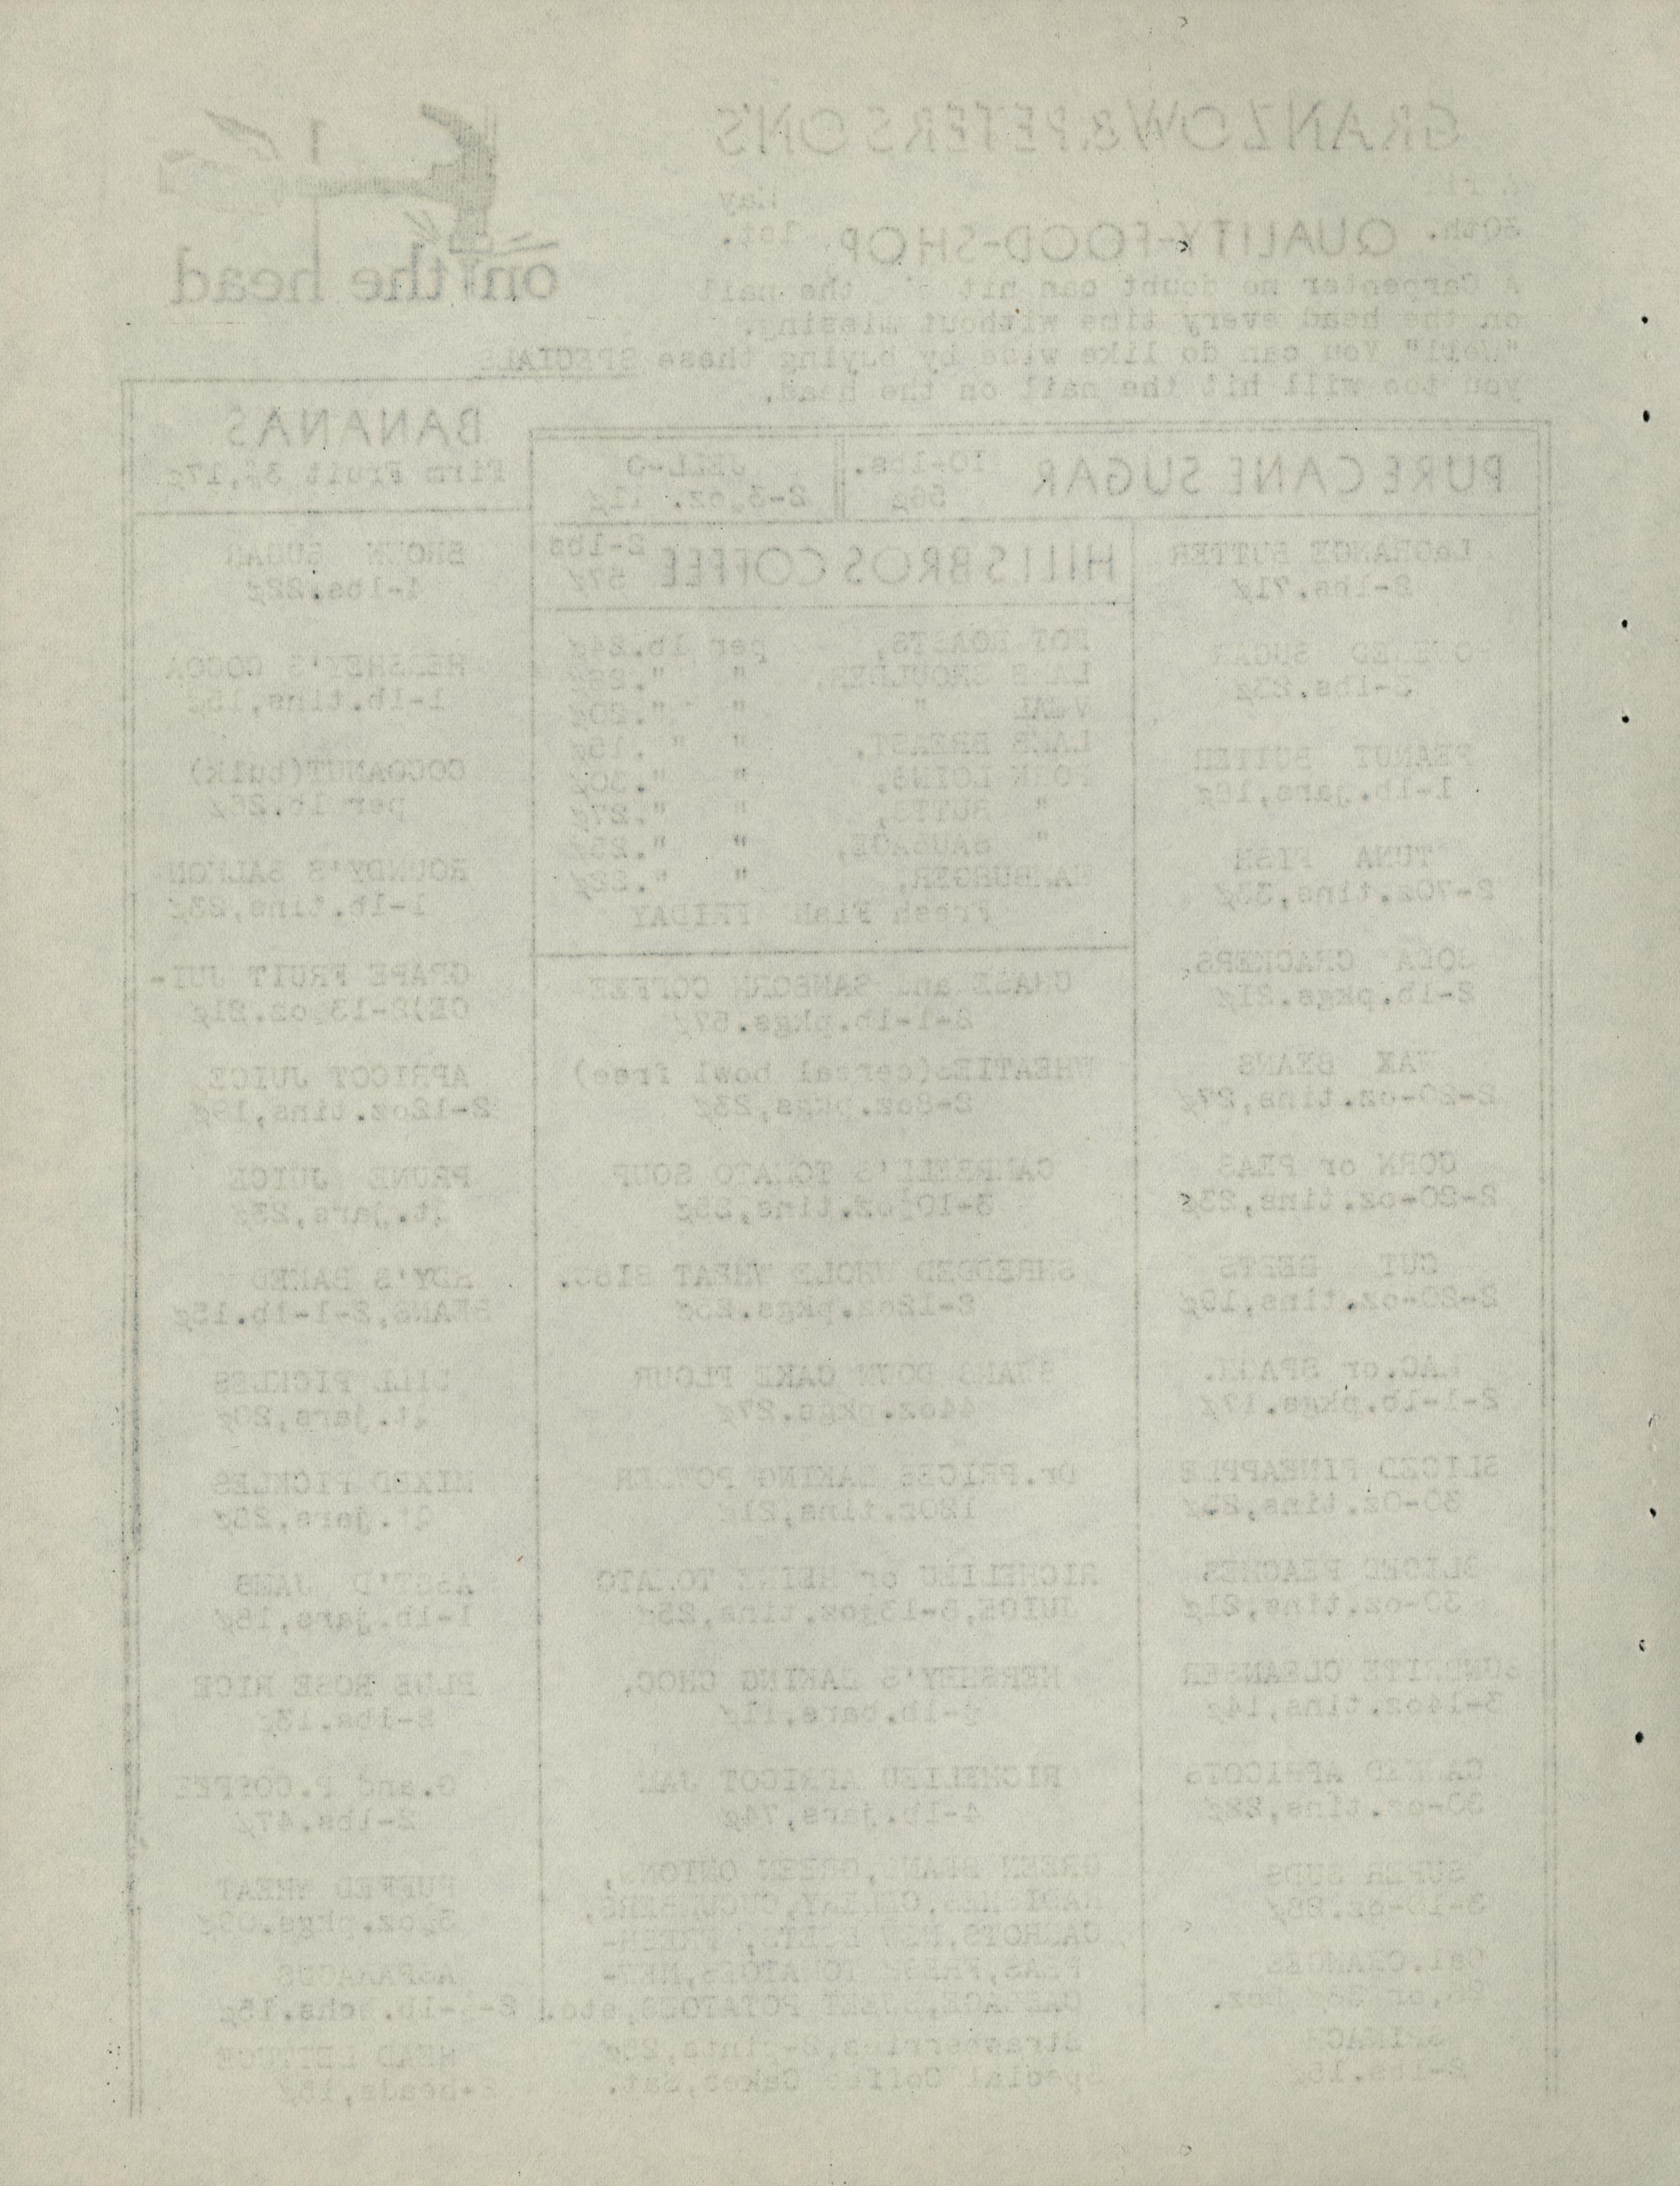 GRANZOW & PETERSON'S
May
30th. QUALITY-FOOD-SHOP 1st.
on the head
A Carpenter no doubt can hit the nail
on the head every time without missing.
"Well" You can do like wise by buying these SPECIALS
you too will hit the nail on the head.
PURE CANE SUGAR 10-lbs. 56¢
JELL-O
BANANAS
Firm Fruit 3#,17¢
HILLS BROS COFFEE 2-lbs 57¢
LaGRANGE BUTTER
2-lbs.71¢
SUGAR
PEANUT BUTTER
1-lb.jars,
TUNA FISH
2-7oz.tins,33¢
SODA CRACKERS,
2-lb.pkgs.21¢
WAX BEANS
2-20-oz.tins,27¢
CORN or PEAS
2-20-oz.tins,23¢
CUT BEETS
2-20-oz.tins,19¢
MAC.or SPAG.
2-1-lb.pkgs.17¢
SLICED PINEAPPLE
30-Oz.tins,
SLICED PEACHES
30-oz.tins,21¢
SUNBRITE CLEANSER
3-14oz.tins,14¢
CANNED APRICOTS
30-oz.tins,22¢
SUPER SUDS
Cal.ORANGES
SPINACH
2-lbs.15¢
POT ROASTS, per lb.24¢
LAMB SHOULDER, " "
VEAL " " ".20¢
LAMB BREAST, " " .15¢
PORK LOINS, " ".30¢
" BUTTS, " ".27¢
" SAUSAGE, " ".25¢
HAMBURGER, " ".22¢
Fresh Fish FRIDAY
CHASE and SANBORN COFFEE
2-1-lb.pkgs.57¢
WHEATIES(cereal bowl free)
2-8oz.pkgs,23¢
CAMPBELL'S TOMATO SOUP
3-10½oz.tins,25¢
SHREDDED WHOLE WHEAT BISC.
2-12oz.pkgs.25¢
SWANS DOWN CAKE FLOUR
44oz.pkgs.27¢
Dr.PRICES BAKING POWDER
12Oz.tins,21¢
RICHELIEU or HEINZ TOMATO
JUICE, tins,25¢
HERSHEY'S BAKING CHOC.
½-lb.bars,11¢
RICHELIEU APRICOT JAM
4-lb.jars,74¢
GREEN BEANS,GREEN ONIONS,
RADISHES,CELERY,CUCUMBERS,
CARROTS,NEW BEETS, FRESH-
PEAS,FRESH TOMATOES,NEW-
CABBAGE,SWEET POTATOES,etc.
Strawberries,2-pints,
Special Coffee Cakes,Sat.
BROWN SUGAR
4-lbs.22¢
HERSHEY'S COCOA
1-lb.tins,
COCOANUT(bulk)
per lb.
ROUNDY'S SALMON
1-lb.tins,23¢
GRAPE FRUIT JUI-
CE)2-13½oz.21¢
APRICOT JUICE
2-12oz.tins,19¢
PRUNE JUICE
Qt.jars,23¢
BAKED
BEANS,2-1-lb.15¢
DILL PICKLES
Qt.jars,20¢
MIXED PICKLES
Qt.jars,25¢
ASST'D JAMS
1-lb.jars,
BLUE ROSE RICE
2-lbs.13¢
G.and P.COFFEE
2-lbs.47¢
PUFFED WHEAT
ASPARAGUS
HEAD LETTUCE
2-heads,15¢